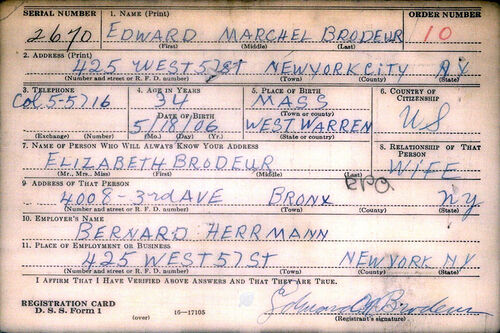 SERIAL NUMBER 1. NAME (Print) ORDER NUMBER
2670 EDWARD MARCHEL BRODEUR 10
(First) (Middle) (Last)
2. ADDRESS (Print)
425 WEST 57ST NEW YORK CITY N.Y.
(Number and street or R. F. D. number) (Town) (County) (State)
3. TELEPHONE 4. AGE IN YEARS 5. PLACE OF BIRTH 6. COUNTRY OF CITIZENSHIP
Col 5-5716 34 MASS US
(Town or county)
DATE OF BIRTH
5/18/06 WEST WARREN
(Exchange) (Number) (Mo.) (Day) (Yr.) (State or country)
7. NAME OF PERSON WHO WILL ALWAYS KNOW YOUR ADDRESS 8. RELATIONSHIP OF THAT PERSON
ELIZABETH BRODEUR WIFE
(Mr., Mrs., Miss) (First) (Middle) (Last)
9 ADDRESS OF THAT PERSON
4008-3rd AVE BRONX N.Y.
(Number and street or R. F. D. number) (Town) (County) (State)
10. EMPLOYER'S NAME
BERNARD HERRMANN
11. PLACE OF EMPLOYMENT OR BUSINESS
425 WEST 57ST NEW YORK NY
(Number and street or R. F. D. number) (Town) (County) (State)
I AFFIRM THAT I HAVE VERIFIED ABOVE ANSWERS AND THAT THEY ARE TRUE.
REGISTRATION CARD
D. S. S. Form 1 (over) 16-17105 Edward M Brodeur
(Registrant's signature)